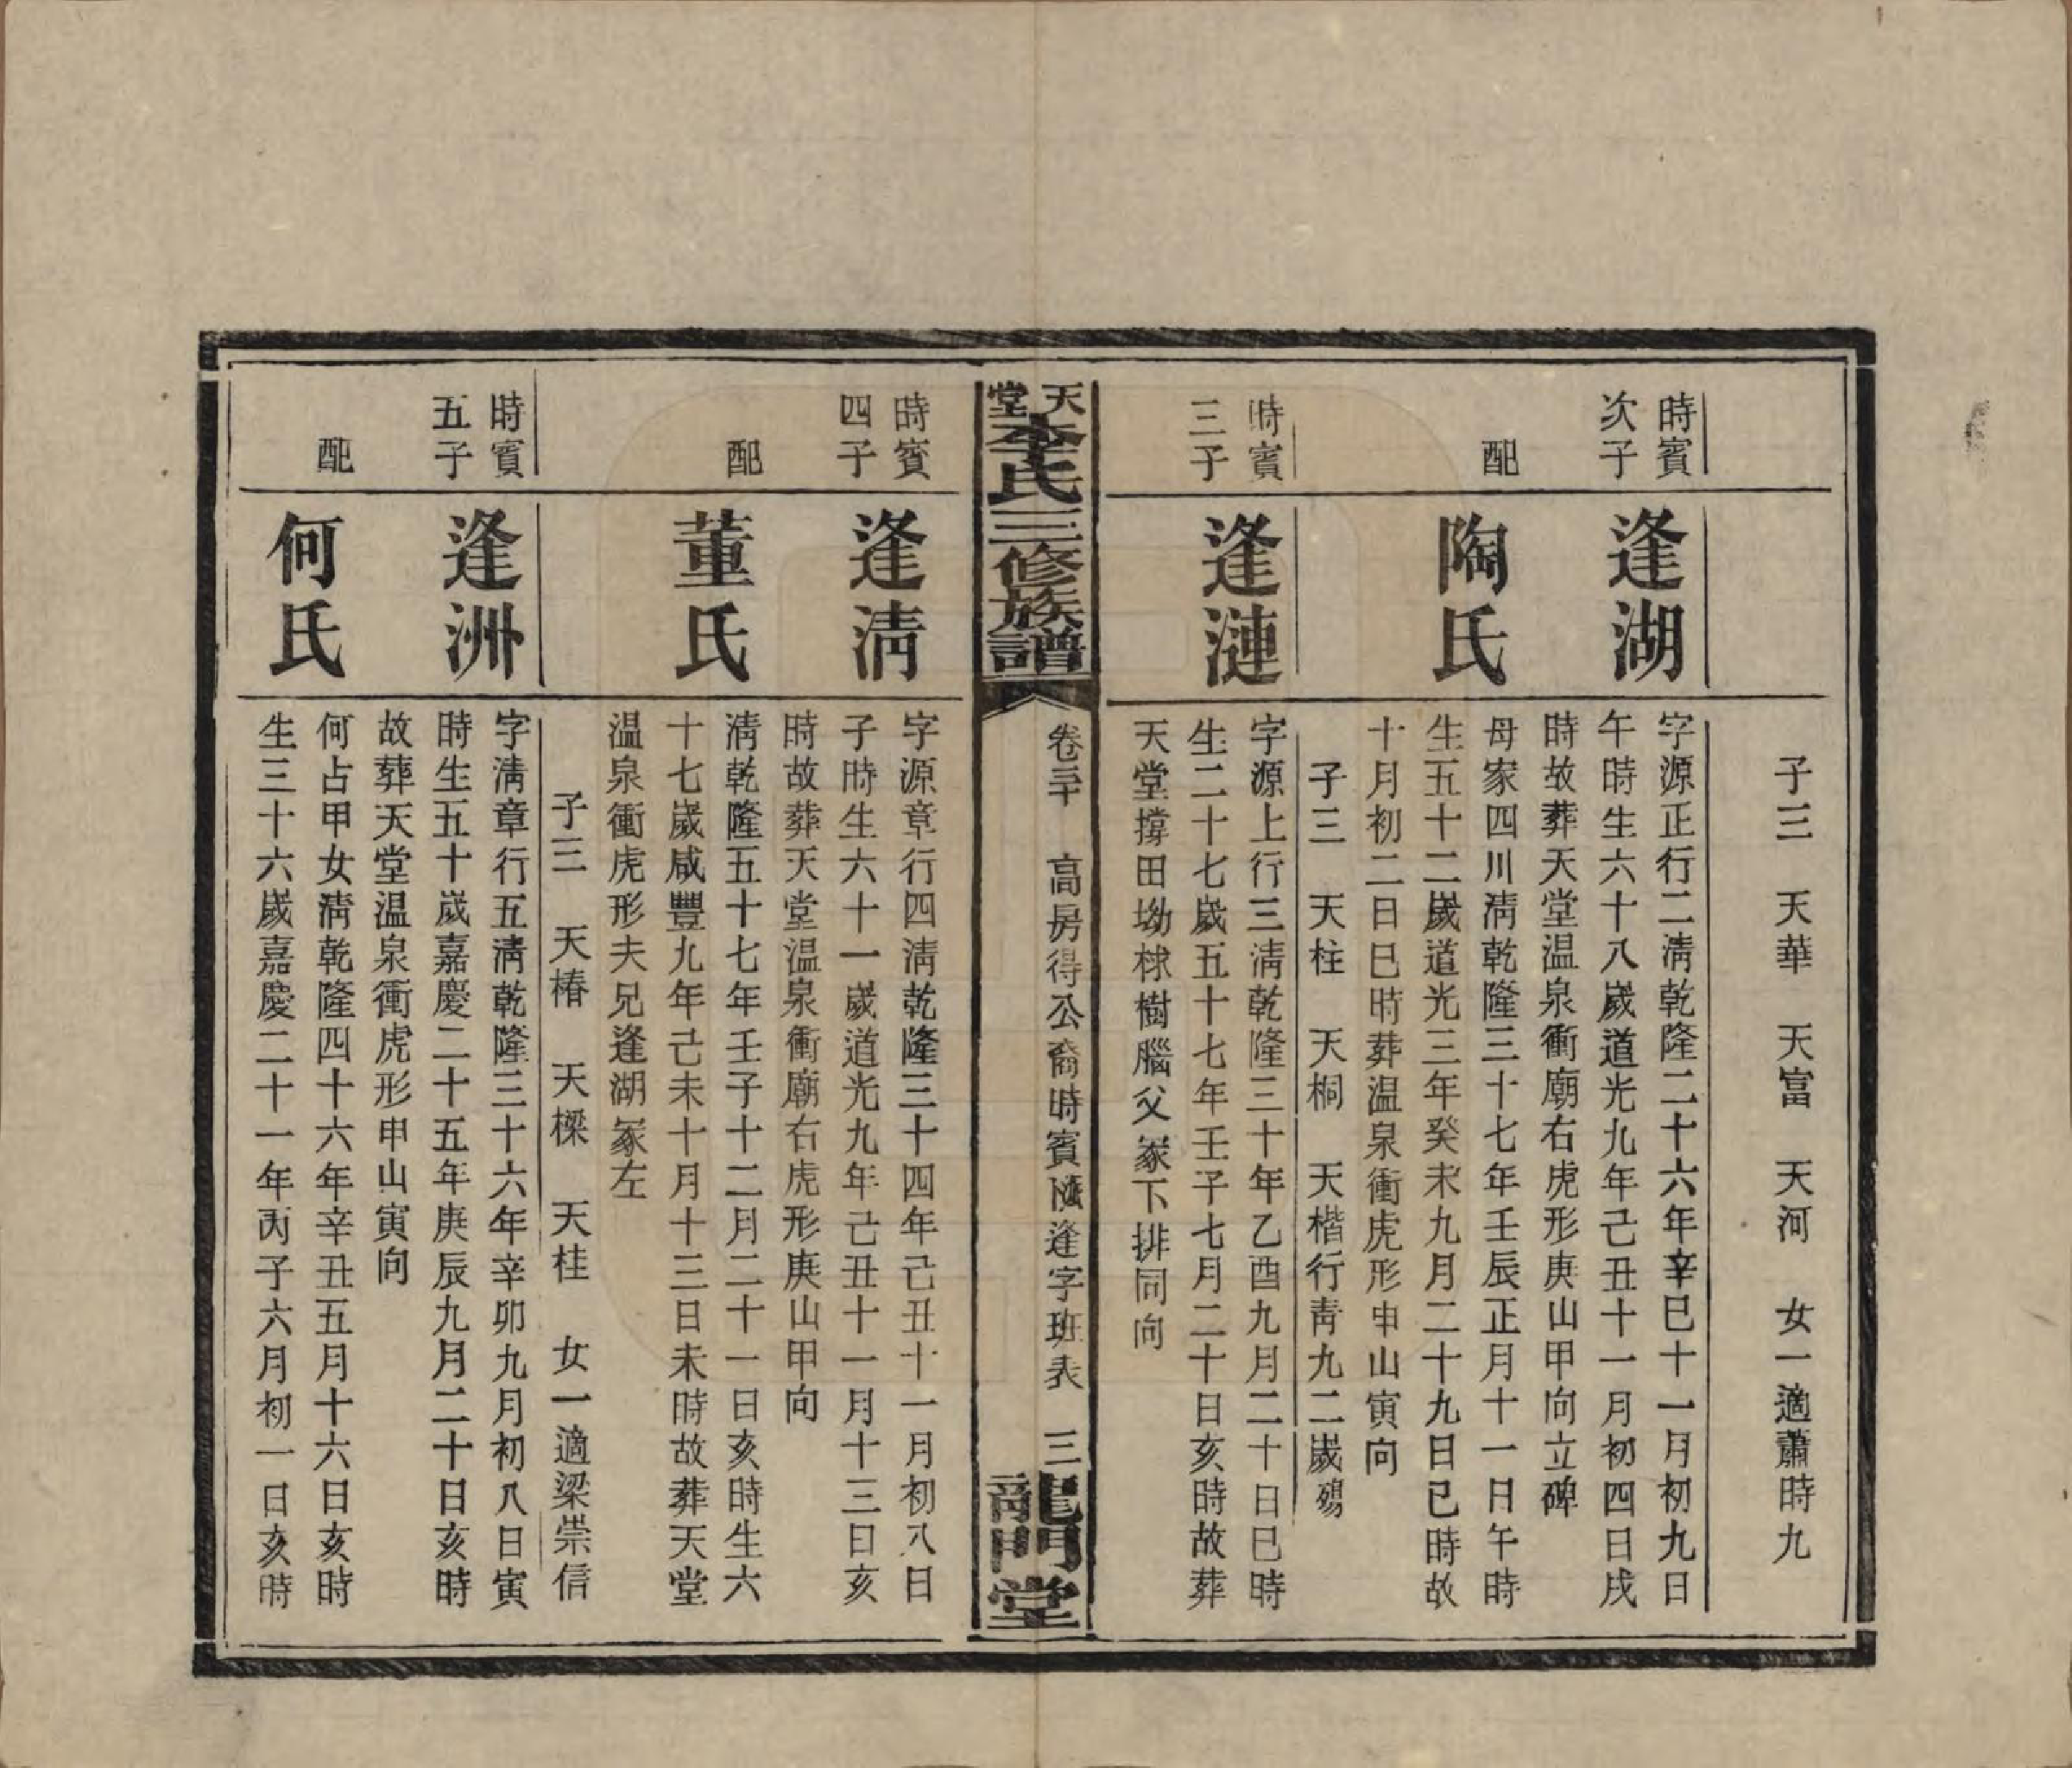 子三　天華　天富　天河　女一適蕭時九
時賓
次子
逢湖
字源正行二淸乾隆二十六年辛巳十一月初九日
午時生六十八歲道光九年己丑十一月初四日戌
時故葬天堂温泉衝廟右虎形庚山甲向立碑
配
陶氏
母家四川淸乾隆三十七年壬辰正月十一日午時
生五十二歲道光三年癸未九月二十九日已時故
十月初二日巳時葬温泉衝虎形申山寅向
子三　天柱　天桐　天楷行靑九二歲殤
時賓
三子
逢漣
字源上行三淸乾隆三十年乙酉九月二十日巳時
生二十七歲五十七年壬子七月二十日亥時故葬
天堂撐田坳樹腦父冢下排同向
天堂李氏三修族譜
卷三十　高房得公裔時賓逢字班表　三
龍門堂
時賓
四子
逢淸
字源章行四淸乾隆三十四年己丑十一月初八日
子時生六十一歲道光九年己丑十一月十三日亥
時故葬天堂温泉衝廟右虎形庚山甲向
配
董氏
淸乾隆五十七年壬子十二月二十一日亥時生六
十七歲咸豐九年己未十月十三日未時故葬天堂
温泉衝虎形夫兄逢湖冢左
子三　天椿　天樑　天桂　女一適梁崇信
時賓
五子
逢洲
字淸章行五淸乾隆三十六年辛卯九月初八日寅
時生五十歲嘉慶二十五年庚辰九月二十日亥時
故葬天堂温泉衝虎形申山寅向
配
何氏
何占甲女淸乾隆四十六年辛丑五月十六日亥時
生三十六歲嘉慶二十一年丙子六月初一日亥時